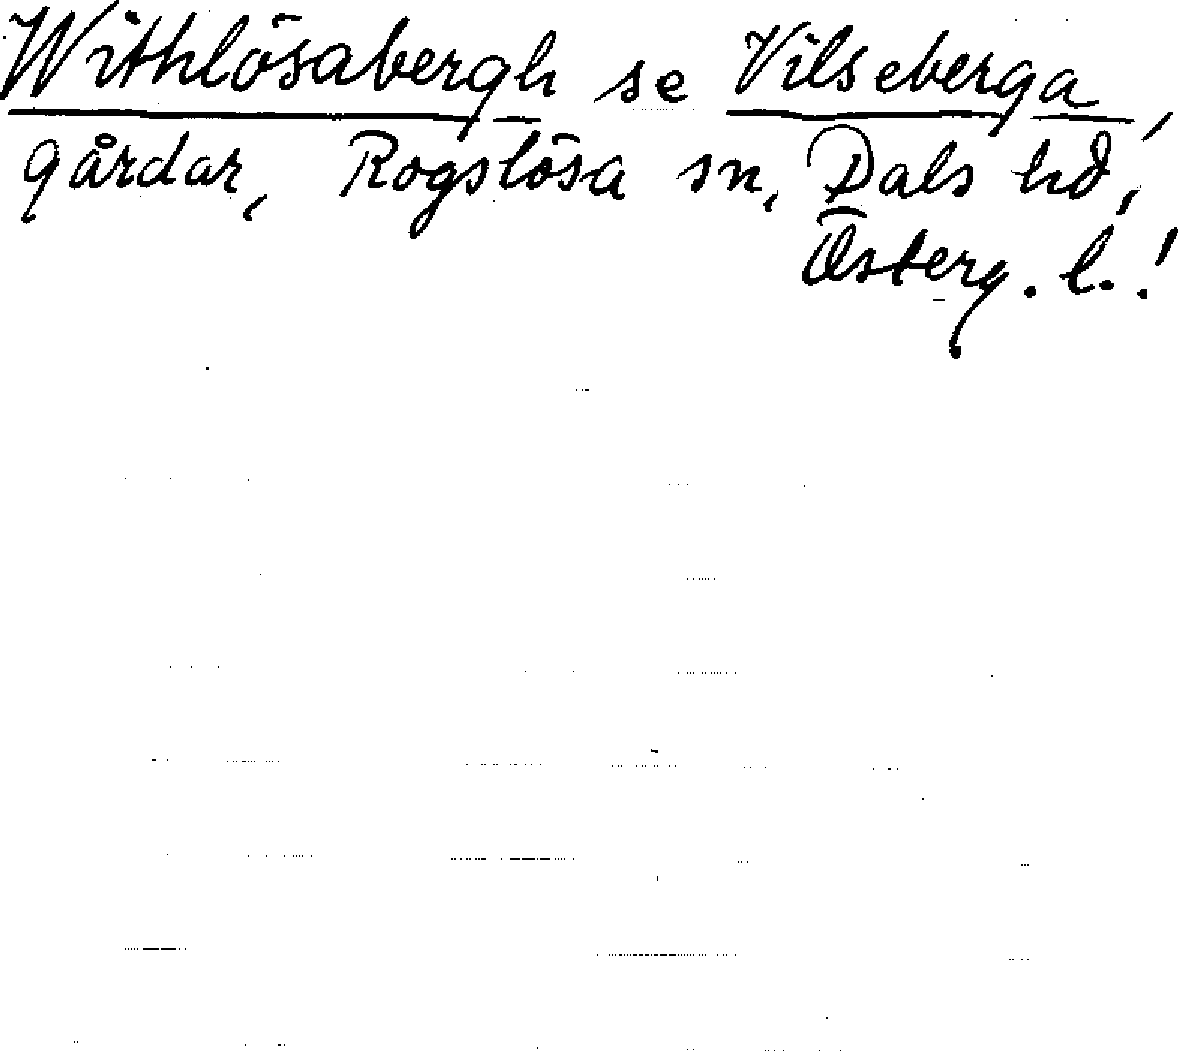 Withlösabergh se Vilseberga,
gårdar, Rogslösa sn, Dals hd,
Österg. l.!